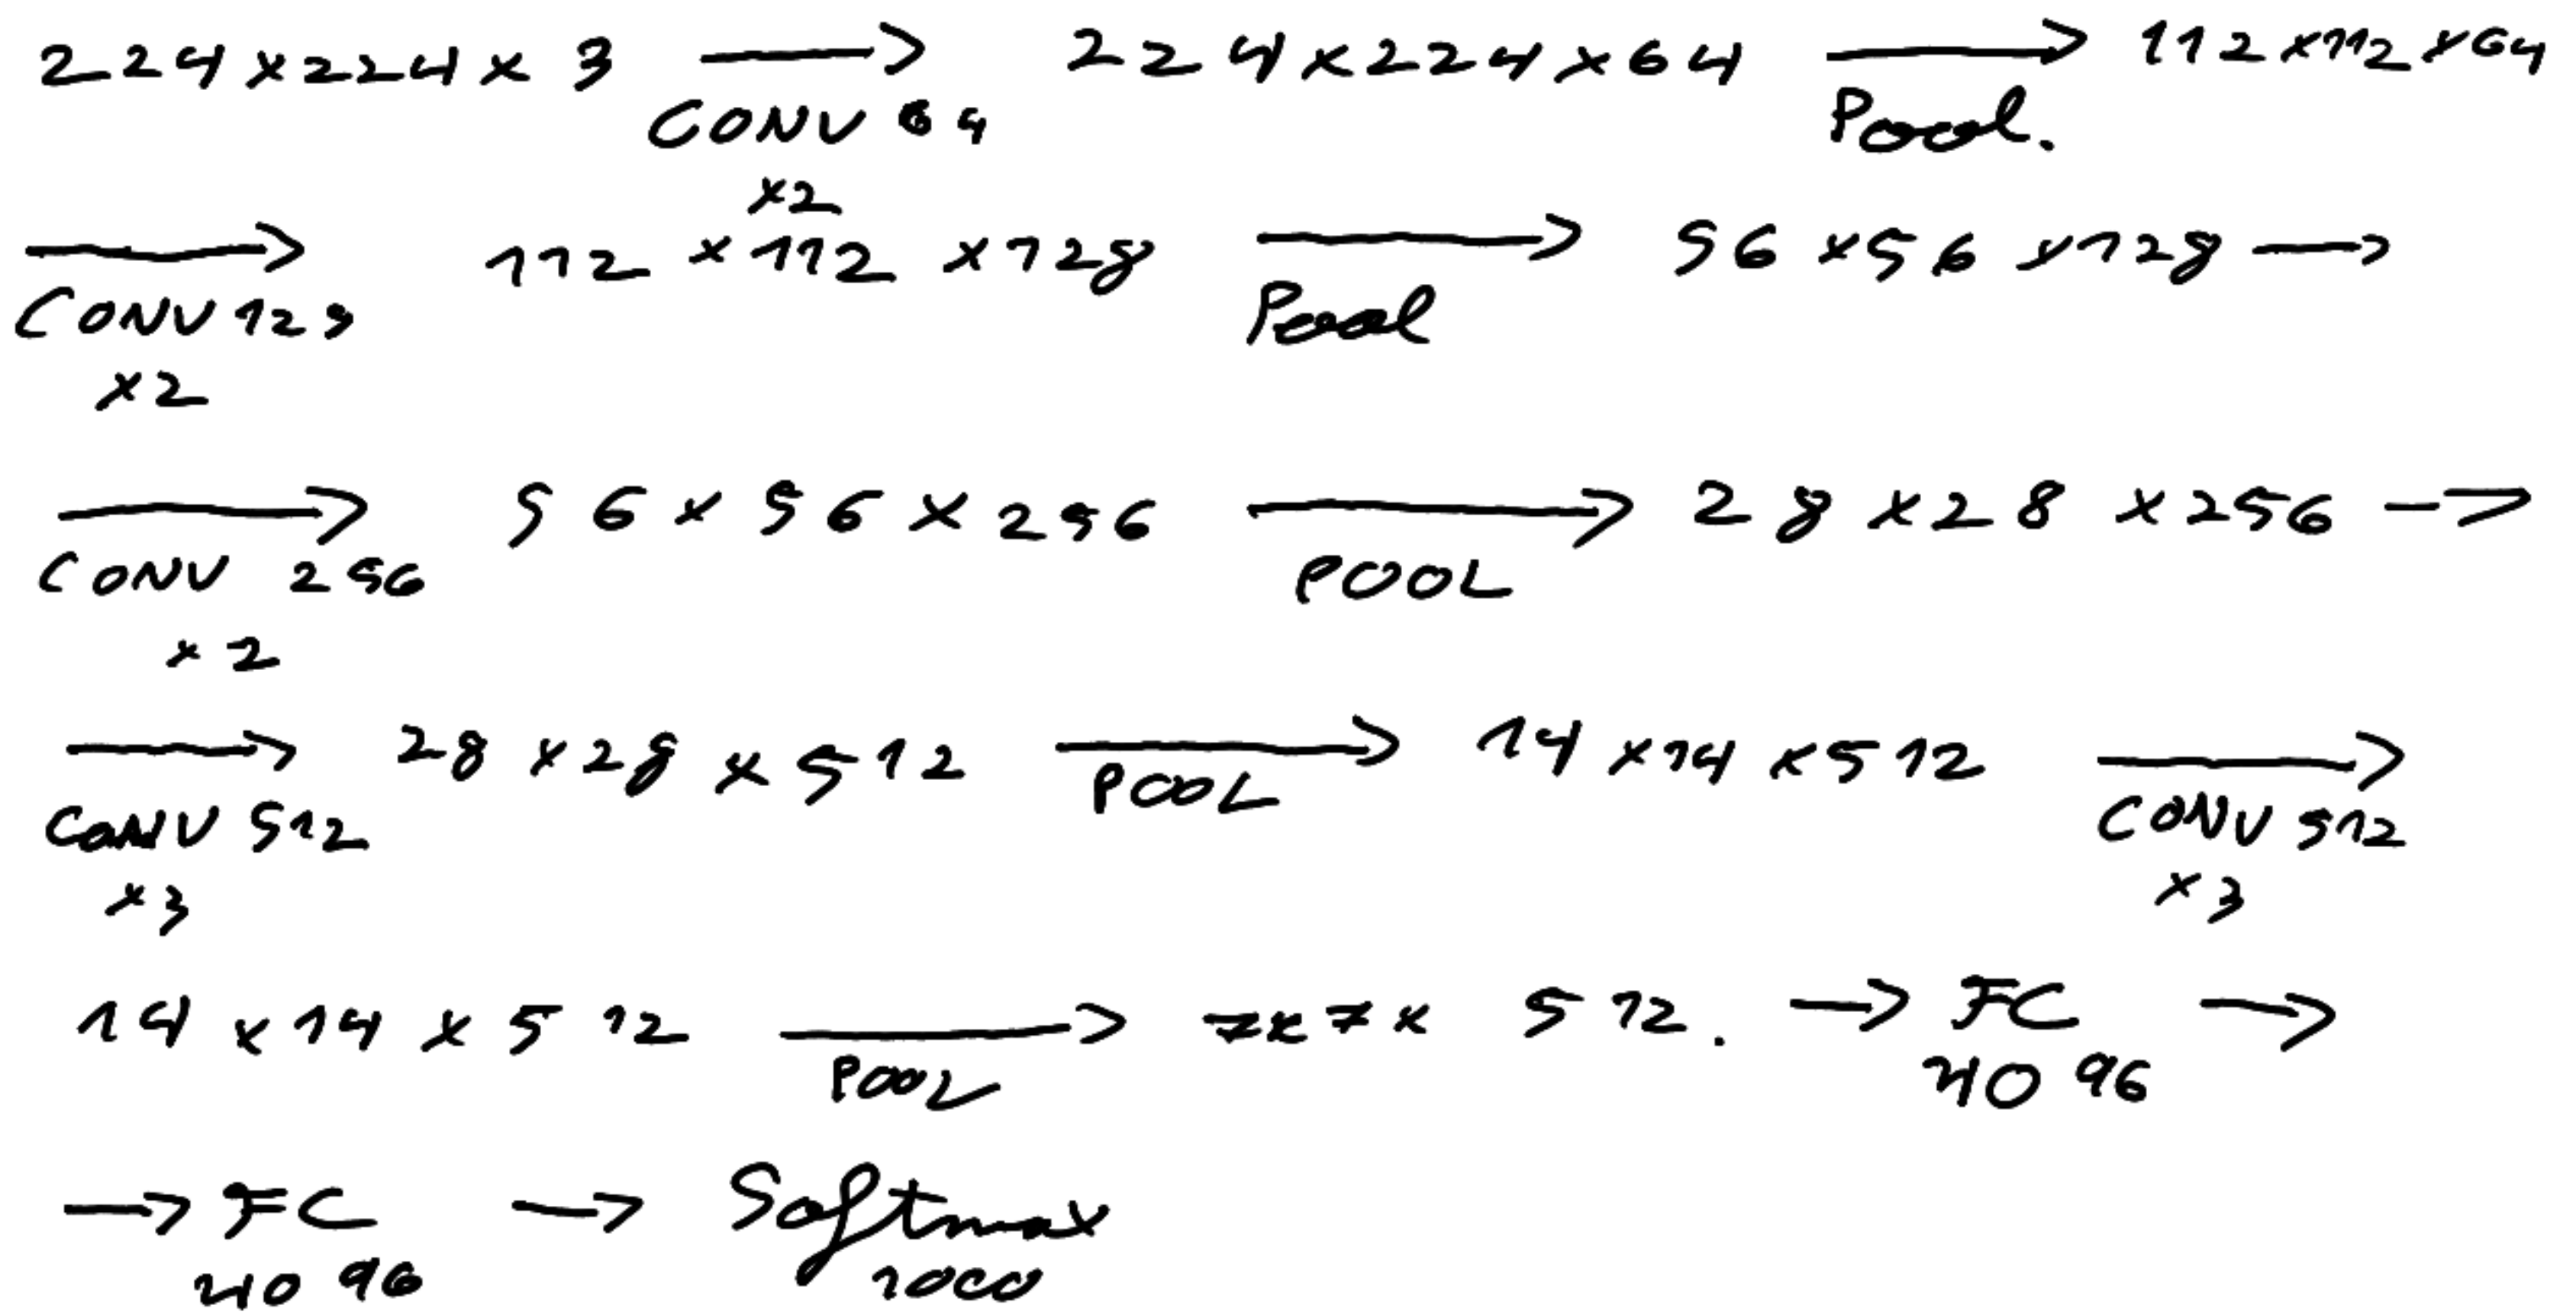 224 x 224 x 3 → 224 x 224 x 64 → 112 x 112 x 64
CONV 64 Pool.
x2
→ 112 x 112 x 128 → 56 x 56 x 128 →
CONV 128 Pool
x2
→ 56 x 56 x 256 → 28 x 28 x 256 →
CONV 256 POOL
x 2
→ 28 x 28 x 512 → 14 x 14 x 512 →
CONV 512 POOL CONV 512
x3 x 3
14 x 14 x 512 → 7x 7x 512. → FC →
POOL 4096
→ FC → Softmax
4096 1000